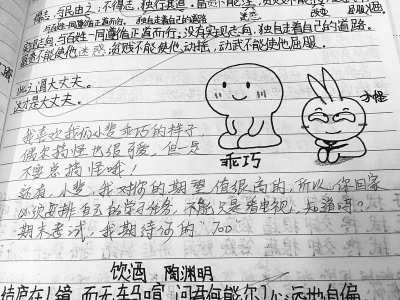 得志,与民由之;不得志,独行其道。富贵不能淫,贫贱不能移
与百姓一同遵循正道而行
独自走着自己的道路
迷惑
改变
屈服
实现志向,与百姓一同遵循正道而行;没有实现志向,独自走着自己的道路。
富贵不能使他迷惑,贫贱不能使他动摇,动武不能使他屈服。
此之谓大丈夫。
这才是大丈夫。
乖巧
搞怪
我喜欢我们小斐乖巧的样子,
偶尔搞怪也很可爱,但一定
不要总搞怪哦!
还有,小斐,我对你的期望值很高的,所以,你回家
必须安排自己的学习任务,不能只是看电视,知道吗?
期末考试,我期待你的"700"
饮酒 陶渊明
结庐在人境,而无车马喧。问君何能尔?心远地自偏